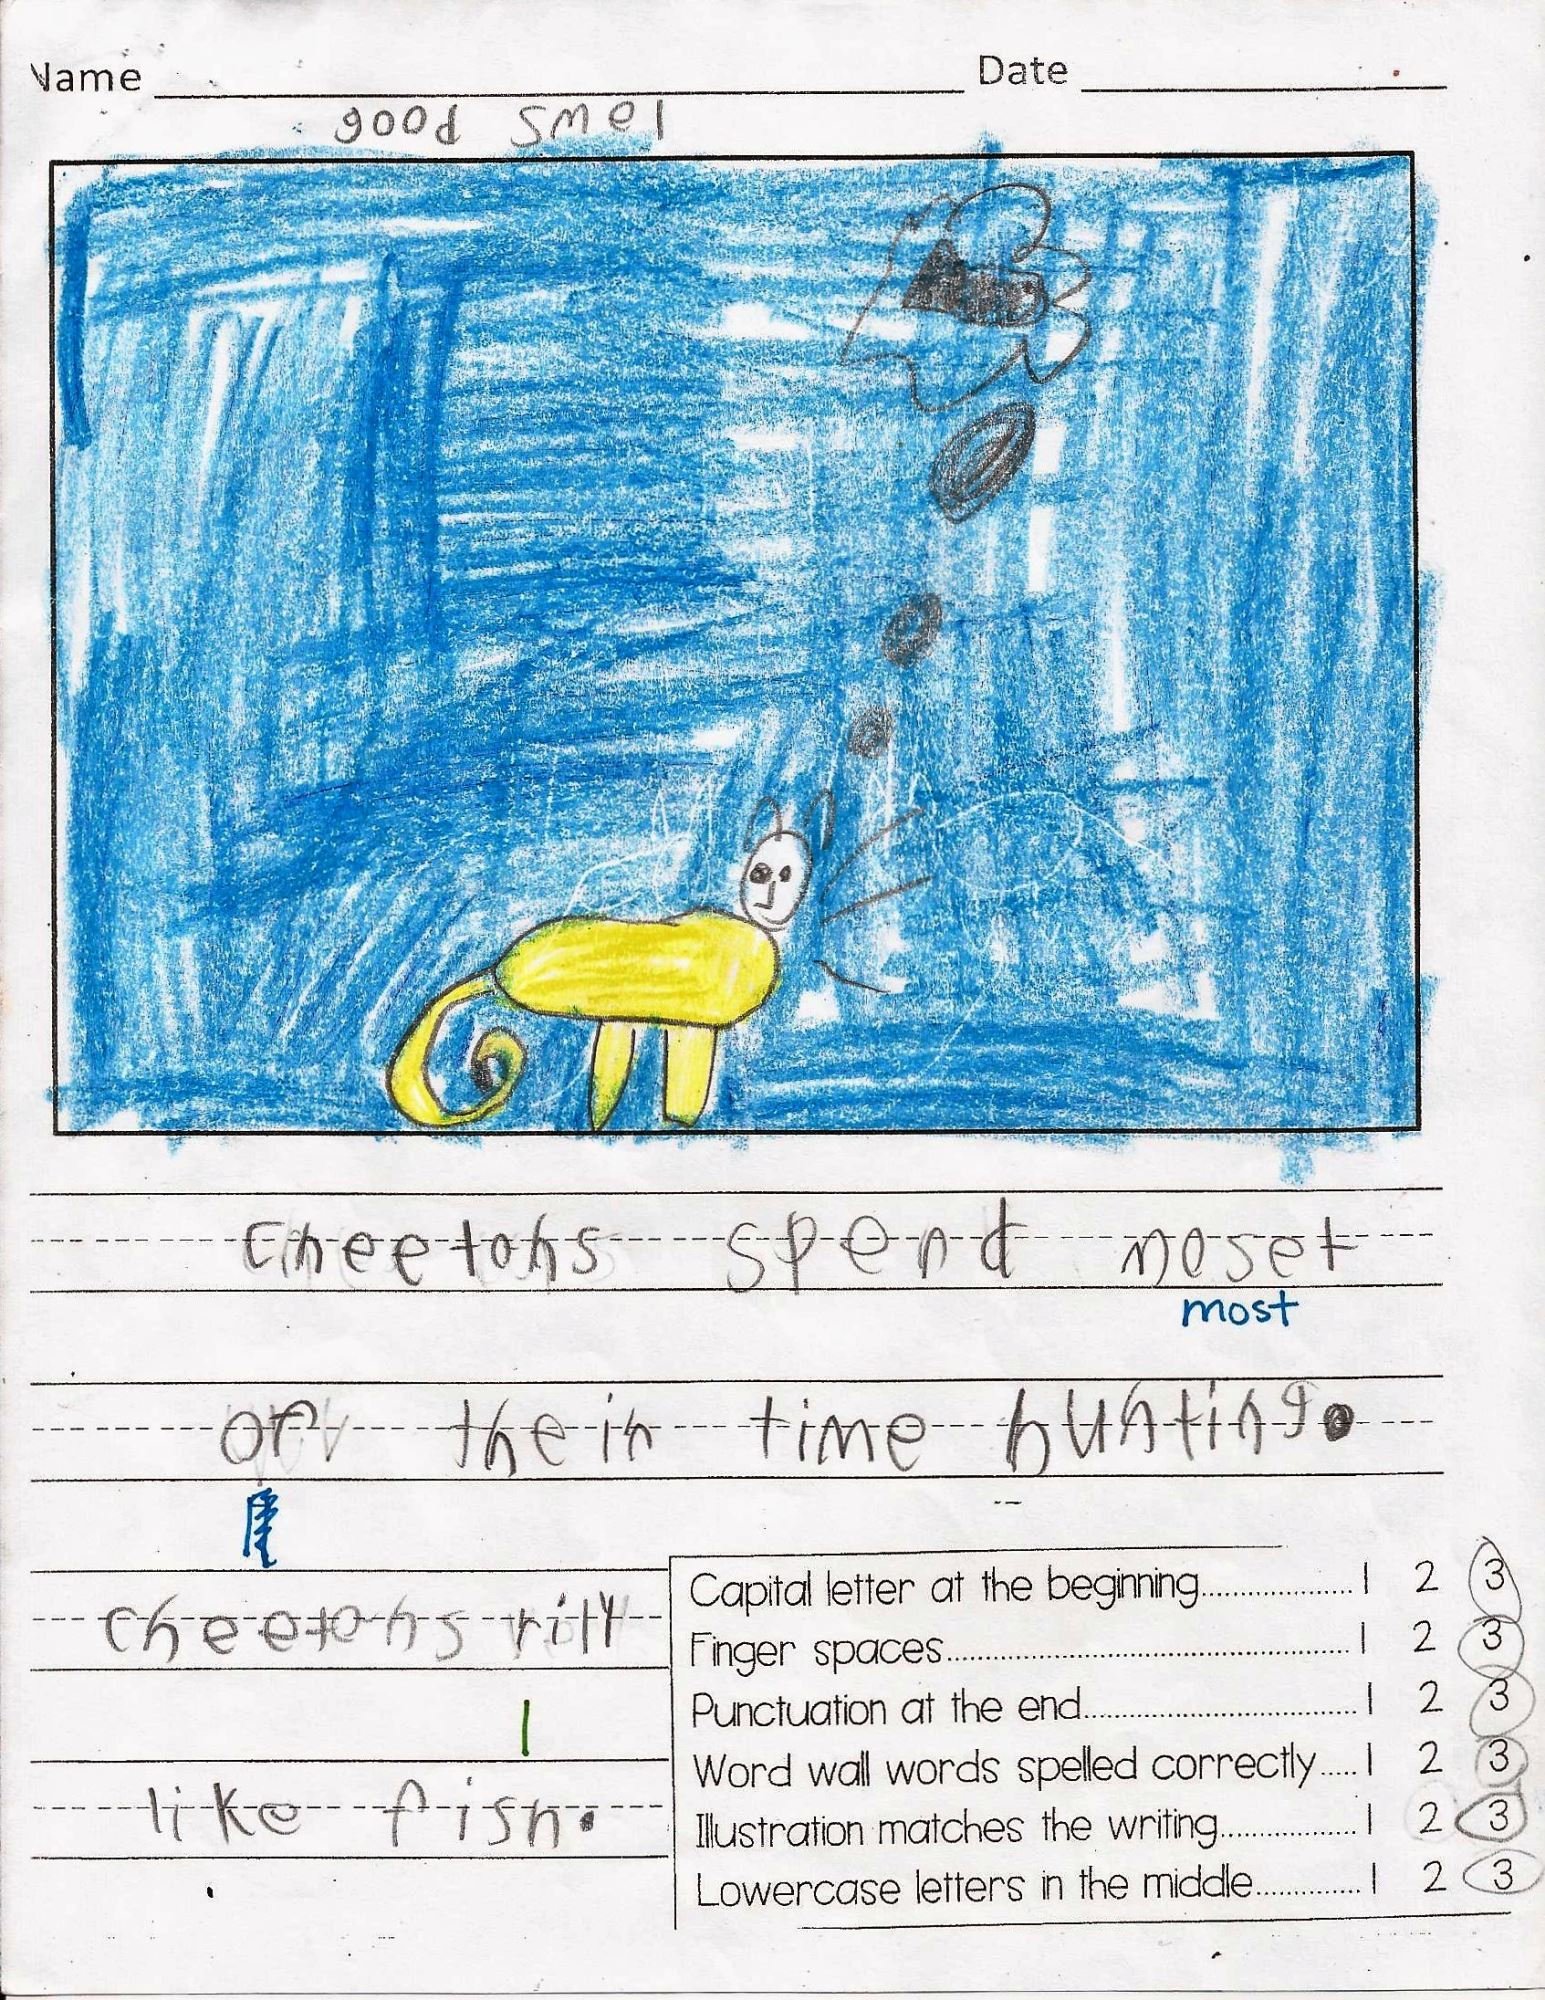 Name Date
good smel
cheetohs spend moset
most
of their time hunting.
cheetohs rilly
l
like fish.
Capital letter at the beginning 1 2 3
Finger spaces 1 2 3
Punctuation at the end 1 2 3
Word wall words spelled correctly 1 2 3
Illustration matches the writing 1 2 3
Lowercase letters in the middle 1 2 3